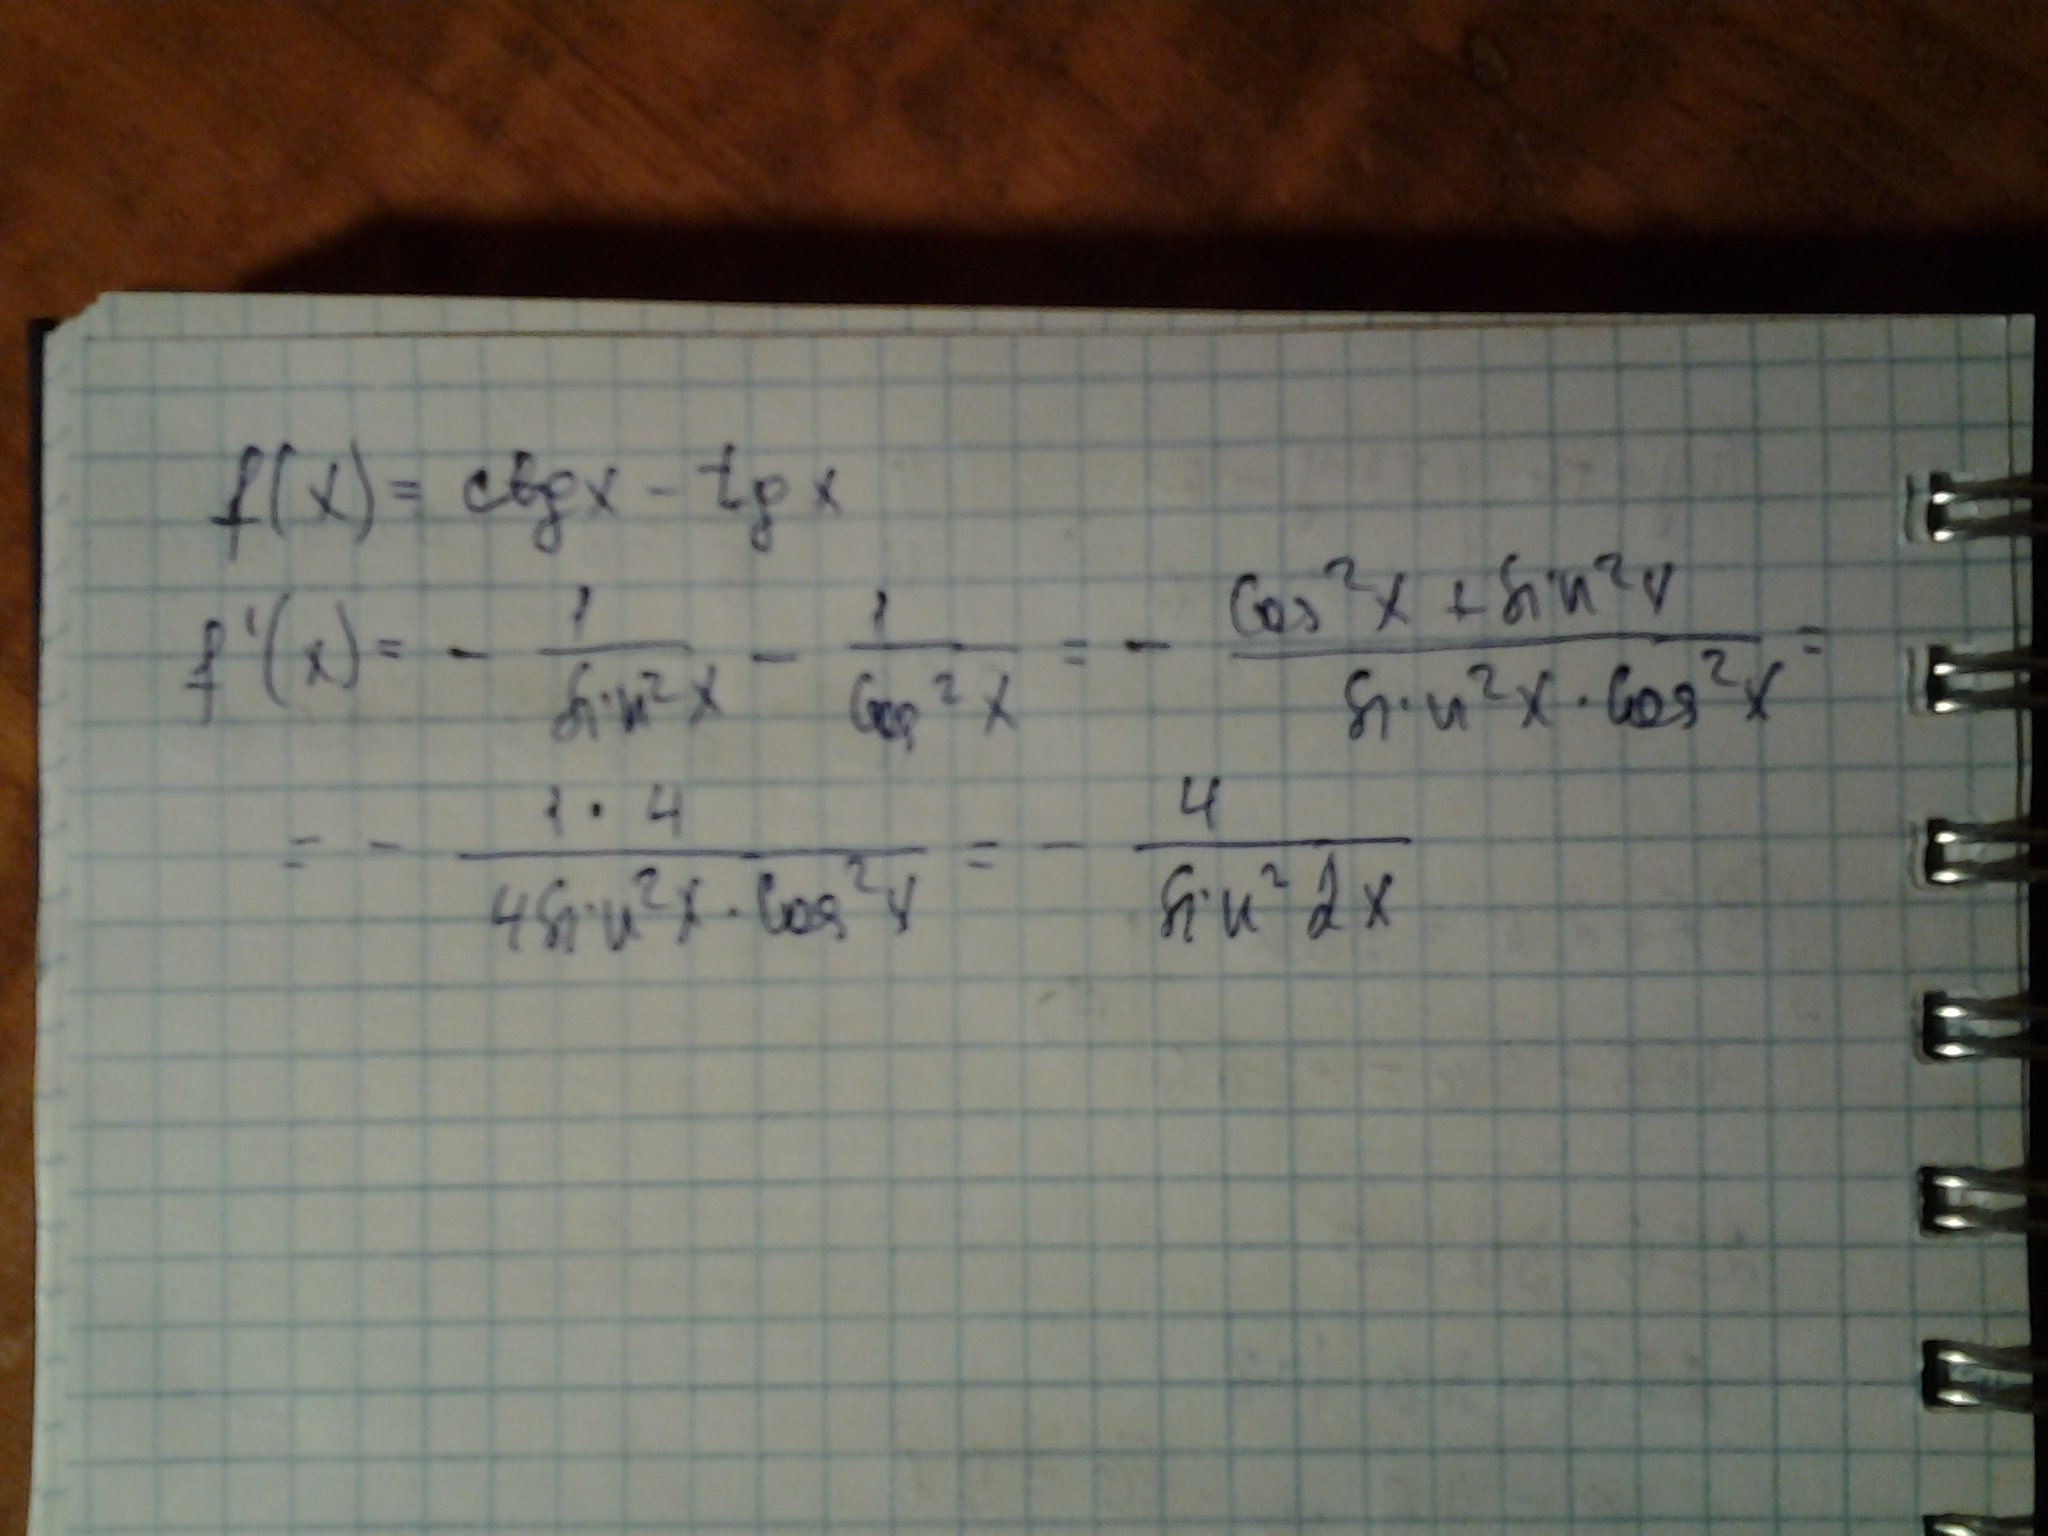 f(x) = ctgx - tgx
f'(x) = - 1/sin²x - 1/cos²x = - (cos²x + sin²x)/(sin²x · cos²x) =
= - (1 · 4)/(4sin²x · cos²x) = - 4/(sin² 2x)